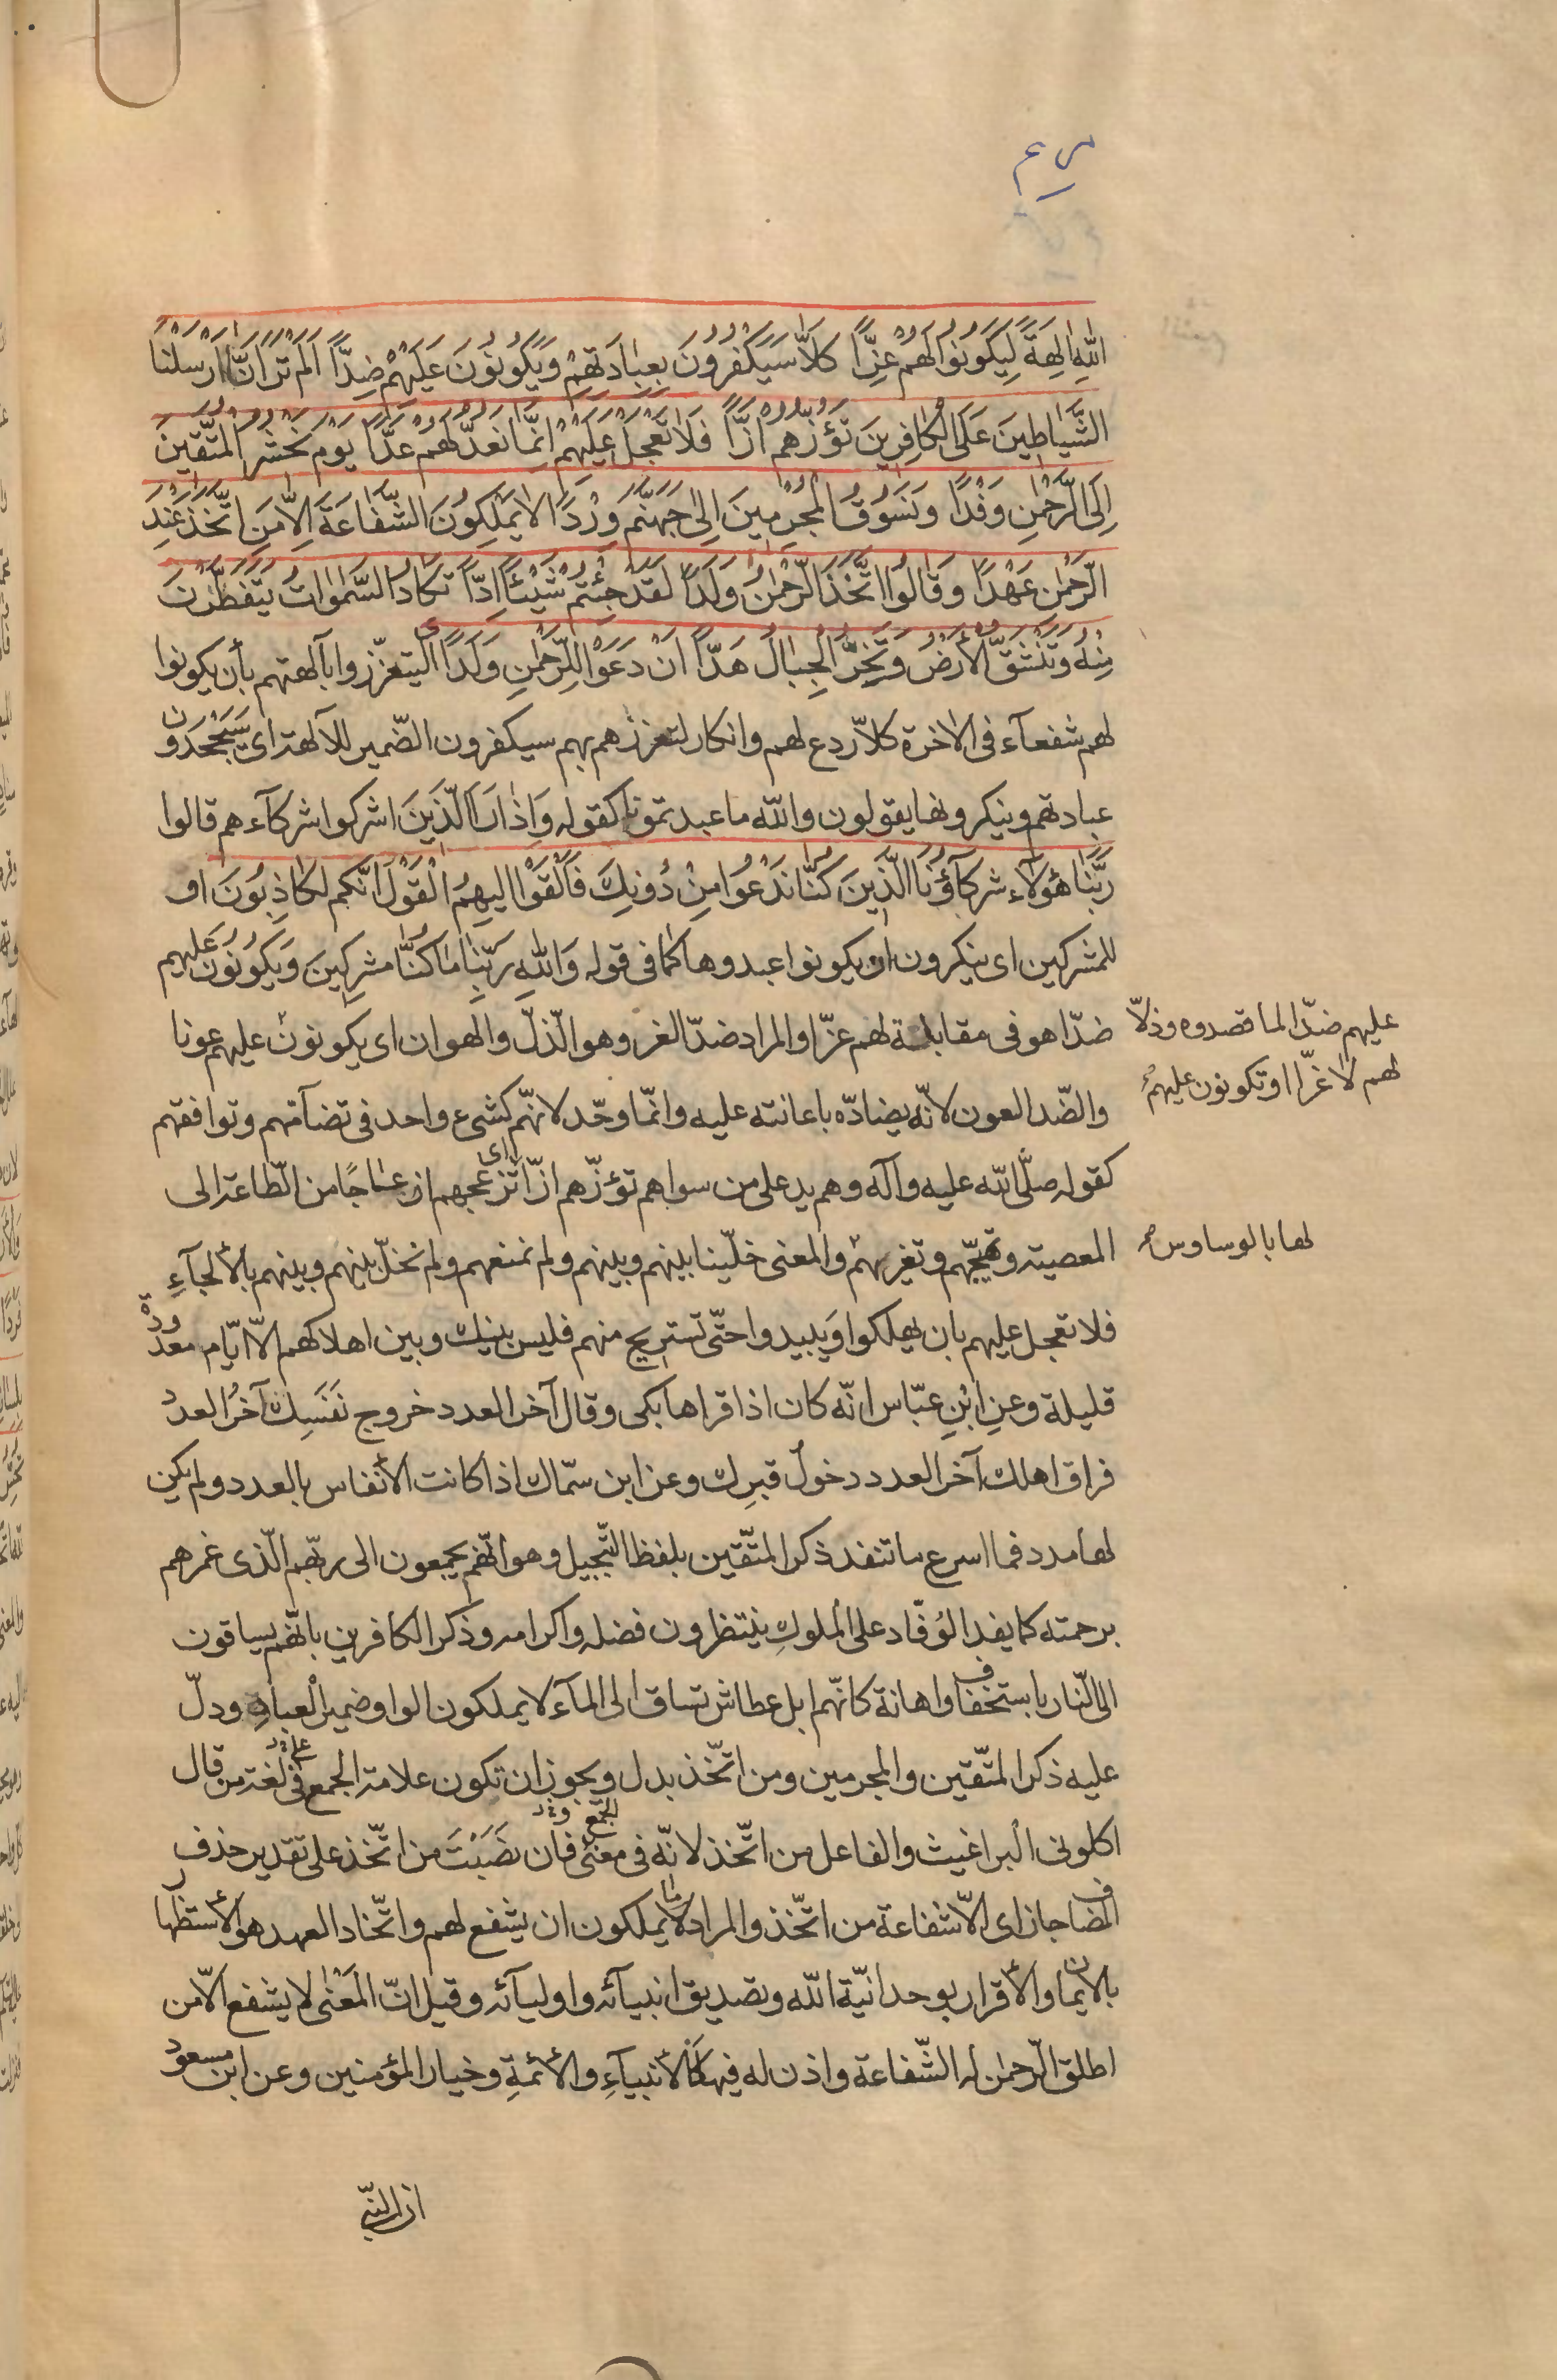 مريم
اللهِ الِهَةً لِيَكُونُوا لَهُمْ عِزًّا كَلَّا سَيَكْفُرُونَ بِعِبَادَتِهِمْ وَيَكُونُونَ عَلَيْهِمْ ضِدًّا اَلَمْ تَرَ اَنَّا اَرْسَلْنَا
الشَّيَاطِينَ عَلَى الْكَافِرِينَ تَؤُزُّهُمْ اَزًّا فَلَا تَعْجَلْ عَلَيْهِمْ اِنَّمَا نَعُدُّ لَهُمْ عَدًّا يَوْمَ نَحْشُرُ الْمُتَّقِينَ
اِلَى الرَّحْمٰنِ وَفْدًا وَنَسُوقُ الْمُجْرِمِينَ اِلٰى جَهَنَّمَ وِرْدًا لَا يَمْلِكُونَ الشَّفَاعَةَ اِلَّا مَنِ اتَّخَذَ عِنْدَ
الرَّحْمٰنِ عَهْدًا وَقَالُوا اتَّخَذَ الرَّحْمٰنُ وَلَدًا لَقَدْ جِئْتُمْ شَيْئًا اِدًّا تَكَادُ السَّمٰوَاتُ يَتَفَطَّرْنَ
مِنْهُ وَتَنْشَقُّ الْأَرْضُ وَتَخِرُّ الْجِبَالُ هَدًّا اَنْ دَعَوْا لِلرَّحْمٰنِ وَلَدًا اى ليتعزّزوا بآلهتهم بأن يكونوا
لهم شفعآء فى الاخرة كلّا ردع لهم وانكار لتعزّزهم بهم سيكفرون الضّمير للآلهة اى سَيَجْحَدُون
عبادتهم وينكرونها يقولون والله ما عبدتمونا كقوله وَاِذَا رَاَ الَّذِينَ اشركوا شركآءهم قالوا
رَبَّنَا هٰؤلَآء شركآؤُنَا الَّذِينَ كُنَّا نَدْعُوا مِنْ دُونِكَ فَاَلْقَوْا اليهِمُ الْقَوْلَ انّكم لَكَاذِبُونَ او
للمشركين اى ينكرون ان يكونوا عبدوها كما فى قوله وَاللهِ رَبِّنَا مَا كُنَّا مشرِكِينَ وَيَكُونُونَ عَلَيهم
ضدّا هو فى مقابلة لهم عزّا والمراد ضدّ العز وهو الّذلّ والهوان اى يكونون عليهم عونا
عليهم ضدّا لما قصدوه وذلّا
لهم لا عزّا او تكونون عليهم
والضّد العون لانّه يضادّه باعانته عليه وانّما وحّد لانهّم كشىء واحد فى تضآمّهم وتوافقهم
كقوله صلّى الله عليه وآله وهم يد على من سواهم تؤزّهم ازّا اى تزعجهم ازعاجًا من الطّاعة الى
المعصية وتهيّجهم وتغريهم والمعنى خلّينا بينهم وبينهم ولم نمنعهم ولم نخلّ بينهم وبينهم بالألجآءِ
لها بالوساوس
فلا تعجل عليهم بان يهلكوا وَيبيدوا حتّى تستريح منهم فليس بينك وبين اهلاكهم الّا ايّام معدودة
قليلة وعنِ ابْنِ عبّاس انّه كان اذا قراها بكى وقال آخر العدد خروج نَفَسِك آخرُ العدد
فراق اهلك آخر العدد دخولُ قبرِك وعن ابن سمّاك اذا كانت الأنفاس بالعدد ولم يكن
لها مدد فما اسرع ما تنفد ذكر المتّقين بلفظ التّبجيل وهو انّهم يجمعون الى ربّهم الّذى غمرهم
برحمته كما يفد الوُفّاد على الملوكِ ينتظرون فضله واكرامه وذكر الكافرين بانّهم يساقون
الى النّار باستخفاف واهانة كانّهم ابل عطاش تساق الى المآء لا يملكون الواو ضمير العبادِ ودلّ
عليه ذكر المتّقين والمجرمين ومن اتّخذ بدل ويجوز ان تكون علامة الجمع فى لغة من قال
اكلونى البراغيث والفاعل من اتّخذ لانّه فى معنى الجمع فان نصَبْتَ من اتّخذ على تقدير حذف
المضاف جاز اى الّا شفاعة من اتّخذ والمراد لا يملكون ان يشفع لهم واتّخاذ العهد هو الأستظهار
بالايمان والأقرار بوحدانيّة الله وتصديق انبيآئه واوليآئه وقيل انّ المَعْنٰى لا يشفع الّا من
اطلق الرّحمٰن له الشّفاعة واذن له فيها كالأنبيآءِ والأئمةِ وخيار المؤمنين وعن ابن مسعود
انّ النّبىّ